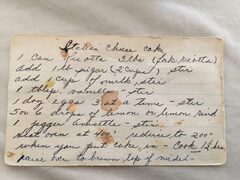 Italian Cheese Cake
1 Can Ricotta 3 lbs (Pork Ricotta)
add 1 lb sugar (2 cups) stir
add 1 cup of milk, stir
1 tblsp vanilla - stir
1 doz eggs 3 at a time - stir
5 or 6 drops of lemon or lemon rind
1 jigger Anisette - stir
Heat oven at 400° reduce to 200°
when you put cake in - Cook 1½ hrs
raise oven to brown top if needed -